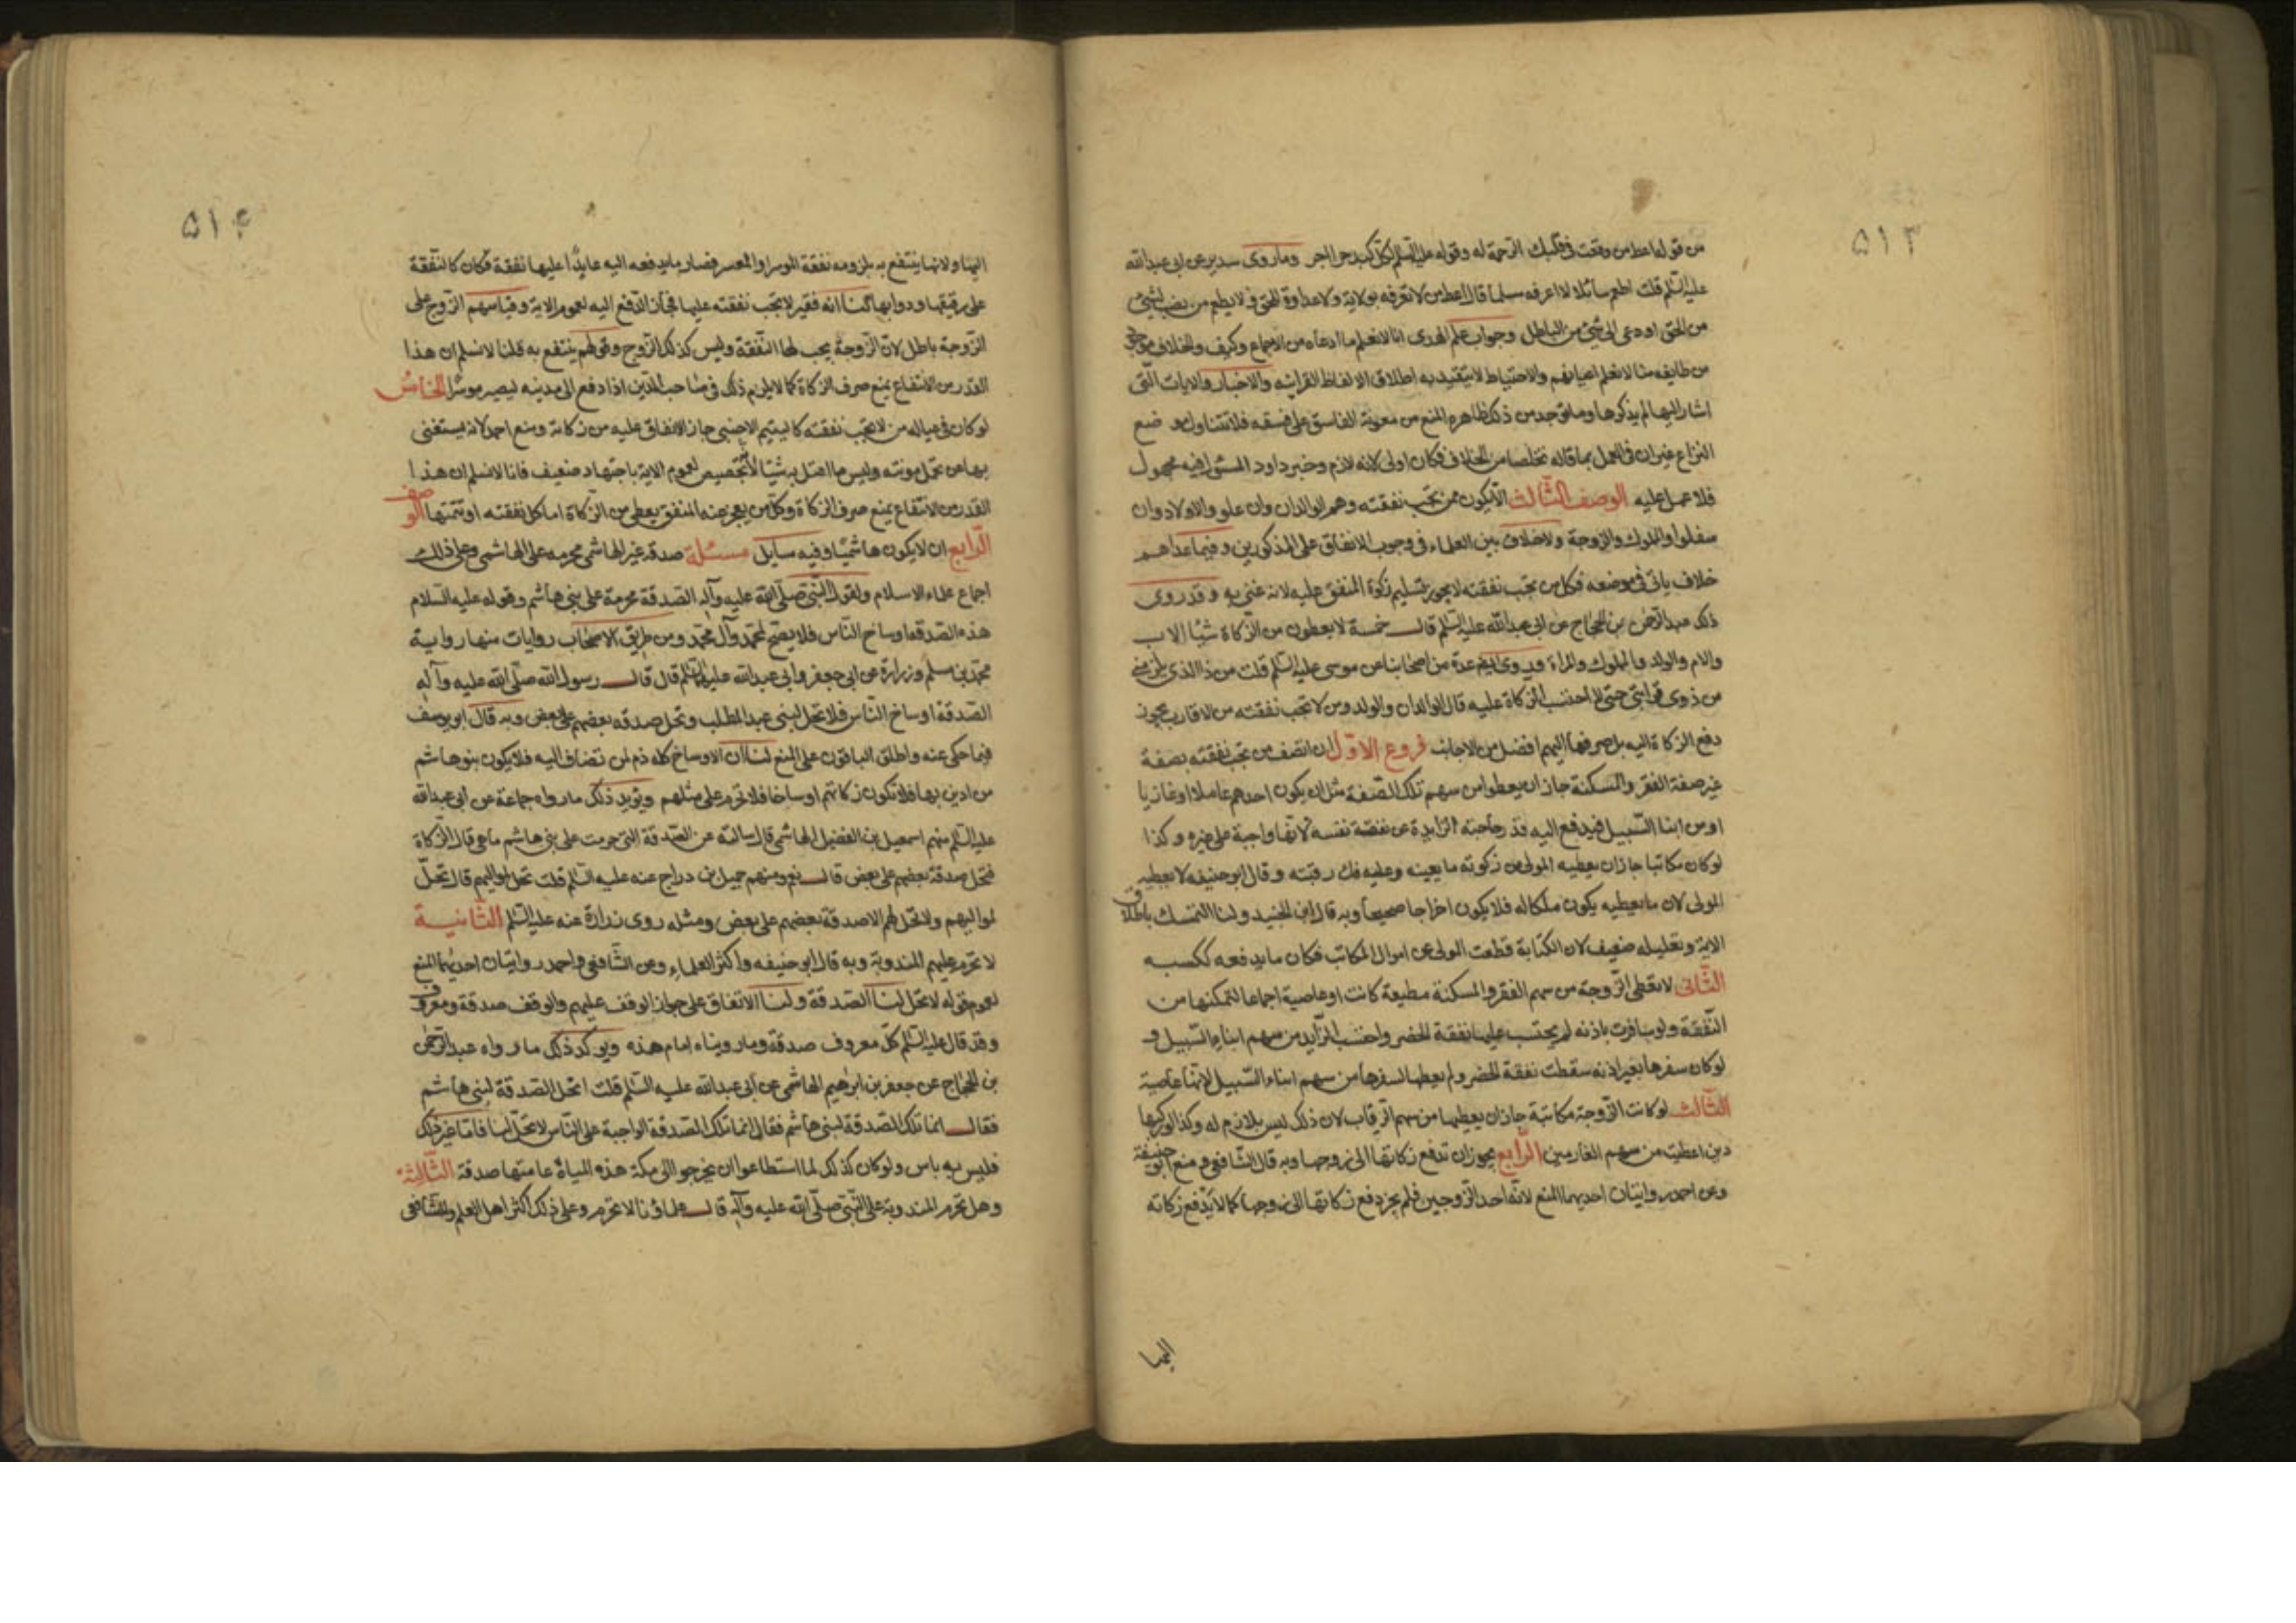 ۵۱۳
من قوله اعط من وقعت فى قلبك الرحمة له وقوله عليه السلم لكل كبد حرا اجر وما روى سدير عن ابى عبدالله
عليه السلم قلت اطعم سائلا لا اعرفه مسلما قال اعط من لا تعرفه بولاية ولا عداوة للحق ولا يطعم من نصب لشئ
من الحق او دعى الى شئ من الباطل وجواب علم الهدى انا لا نعلم ما ادعاه من الاجماع وكيف والخلاف موجود
من طايفه منا لا نعلم اعيانهم والاحتياط لا يتقيد به اطلاق الالفاظ القرانيه والاخبار والايات التى
اشار اليها لم يذكرها وما توجد من ذلك ظاهره المنع من معونة الفاسق على فسقه فلا تتناول موضع
النزاع غير ان فى العمل بما قاله تخلصا من الخلاف فكان اولى لانه لازم وخبر داود المسئول فيه مجهول
فلا عمل عليه الوصف الثالث الا يكون ممن تجب نفقته وهم الوالدان وان علو والاولاد وان
سفلوا والمملوك والزوجة ولا خلاف بين العلماء فى وجوب الانفاق على المذكورين وفيما عداهم
خلاف ياتى فى موضعه فكل من تجب نفقته لا يجوز تسليم زكوة المنفق عليه لانه غنى به وقد روى
ذلك عبد الرحمن بن الحجاج عن ابى عبدالله عليه السلم قال خمسة لا يعطون من الزكاة شيئا الاب
والام والولد والمملوك والمراة وروى ايضم عدة من اصحابنا عن موسى عليه السلم قلت من ذا الذى يلزمنى
من ذوى قرابتى حتى لا احتسب الزكاة عليه قال الوالدان والولد ومن لا تجب نفقته من الاقارب يجوز
دفع الزكاة اليه بل صرفها اليهم افضل من الاجانب فروع الاول ان اتصف من تجب نفقته بصفة
غير صفة الفقر والمسكنة جاز ان يعطوا من سهم تلك الصفة مثل ان يكون احدهم عاملا او غازيا
او من ابنا السبيل فيدفع اليه قدر حاجته الزايدة عن نفقة نفسه لانها واجبة على غيره وكذا
لو كان مكاتبا جاز ان يعطيه المولى من زكوته ما يعينه وعليه فك رقبته وقال ابو حنيفه لا يعطيه
المولى لان ما يعطيه يكون ملكا له فلا يكون اخراجا صحيحا وبه قال ابن الجنيد ولنا التمسك باطلاق
الاية وتعليله ضعيف لان الكتابة قطعت المولى عن اموال المكاتب فكان ما يدفعه ككسبه
الثانى لا تعطى الزوجة من سهم الفقر والمسكنة مطيعة كانت او عاصية اجماعا لتمكنها من
النفقة ولو سافرت باذنه لم يحتسب عليها نفقة الحضر واحتسب الزايد من سهم ابناء السبيل و
لو كان سفرها بغير اذنه سقطت نفقة الحضر ولم يعطها لسفرها من سهم ابناء السبيل لانها عاصية
الثالث لو كانت الزوجة مكاتبة جاز ان يعطيها من سهم الرقاب لان ذلك ليس بلازم له وكذا لو ركبها
دين اعطيت من سهم الغارمين الرابع يجوز ان تدفع زكاتها الى زوجها وبه قال الشافعى ومنع ابو حنيفة
وعن احمد روايتان احديهما المنع لانه احد الزوجين فلم يجز دفع زكاتها الى زوجها كما لا يدفع زكاته
اليها
۵۱۴
اليها ولانها ينتفع به يلزومه نفقة الموسر او المعسر فصار ما يدفعه اليه عايدا عليها نفقة فكان كالنفقة
على رقيقها ودوابها لنا انه فقير لا تجب نفقته عليها فجاز الدفع اليه لعموم الاية وقياسهم الزوج على
الزوجة باطل لان الزوجة يجب لها النفقة وليس كذلك الزوج وقولهم ينتفع به قلنا لا نسلم ان هذا
القدر من الانتفاع يمنع صرف الزكاة كما لا يلزم ذلك فى صاحب الدين اذا دفع الى مدينه ليصير موسرا الخامس
لو كان فى عياله من لا تجب نفقته كاليتيم الاجنبى جاز الانفاق عليه من زكاته ومنع احمد لانه يستغنى
بها عن تحمل مونته وليس ما اعتل به شيئا لا تخصيص لعموم الاية باجتهاد ضعيف فانا لا نسلم ان هذا
القدر من الانتفاع يمنع صرف الزكاة وكل من يعجز عنه المنفق يعطى من الزكاة اما كل نفقته او تتمتها الوصف
الرابع ان لا يكون هاشميا وفيه سايل مسئلة صدقة غير الهاشمى محرمه على الهاشمى وعلى ذلك
اجماع علماء الاسلام ولقول النبى صلى الله عليه وآله الصدقة محرمة على بنى هاشم وقوله عليه السلام
هذه الصدقه اوساخ الناس فلا يصح لمحمد وآل محمد ومن طريق الاصحاب روايات منها رواية
محمد بن مسلم وزرارة عن ابى جعفر وابى عبدالله عليهما السلم قال قال رسول الله صلى الله عليه وآله
الصدقة اوساخ الناس فلا تحل لبنى عبد المطلب وتحل صدقه بعضهم على بعض وبه قال ابو يوسف
فيما حكى عنه واطلق الباقون على المنع لنا ان الاوساخ كله ذم لمن تضاف اليه فلا يكون بنو هاشم
من ادين بها فلا تكون زكاتهم اوساخا فلا تحرم على مثلهم ويؤيد ذلك ما رواه جماعة عن ابى عبدالله
عليه السلم منهم اسمعيل بن الفضيل الهاشمى قال سالته عن الصدقة التى حرمت على بنى هاشم ما هى قال الزكاة
فتحل صدقة بعضهم على بعض قال نعم ومنهم جميل بن دراج عنه عليه السلم قلت تحل لمواليهم قال تحل
لمواليهم ولا تحل لهم الا صدقة بعضهم على بعض ومثله روى زرارة عنه عليه السلم الثانية
لا تحرم عليهم المندوبة وبه قال ابو حنيفه واكثر العلماء وعن الشافعى واحمد روايتان احديهما المنع
لعموم قوله لا تحل لنا الصدقة ولنا الاتفاق على جواز الوقف عليهم والوقف صدقة ومعروف
وقد قال عليه السلم كل معروف صدقة وما رويناه امام هذه ويؤكد ذلك ما رواه عبد الرحمن
بن الحجاج عن جعفر بن ابرهيم الهاشمى عن ابى عبدالله عليه السلم قلت اتحل الصدقة لبنى هاشم
فقال انما تلك الصدقة لبنى هاشم فقال انما تلك الصدقة الواجبة على الناس لا تحل لنا فاما غير ذلك
فليس به باس ولو كان كذلك لما استطاعوا ان يخرجوا الى مكة هذه المياه عامتها صدقة الثالثة
وهل تحرم المندوبة على النبى صلى الله عليه وآله قال علماؤنا لا تحرم وعلى ذلك اكثر اهل العلم وللشافعى